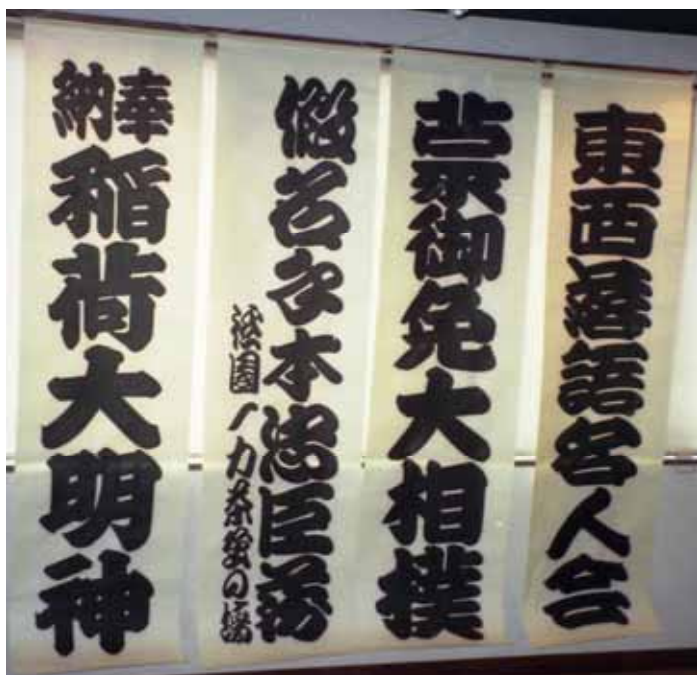 東西落語名人会
蒙御免大相撲
假名手本忠臣蔵
祇園一力茶屋の場
奉納稲荷大明神